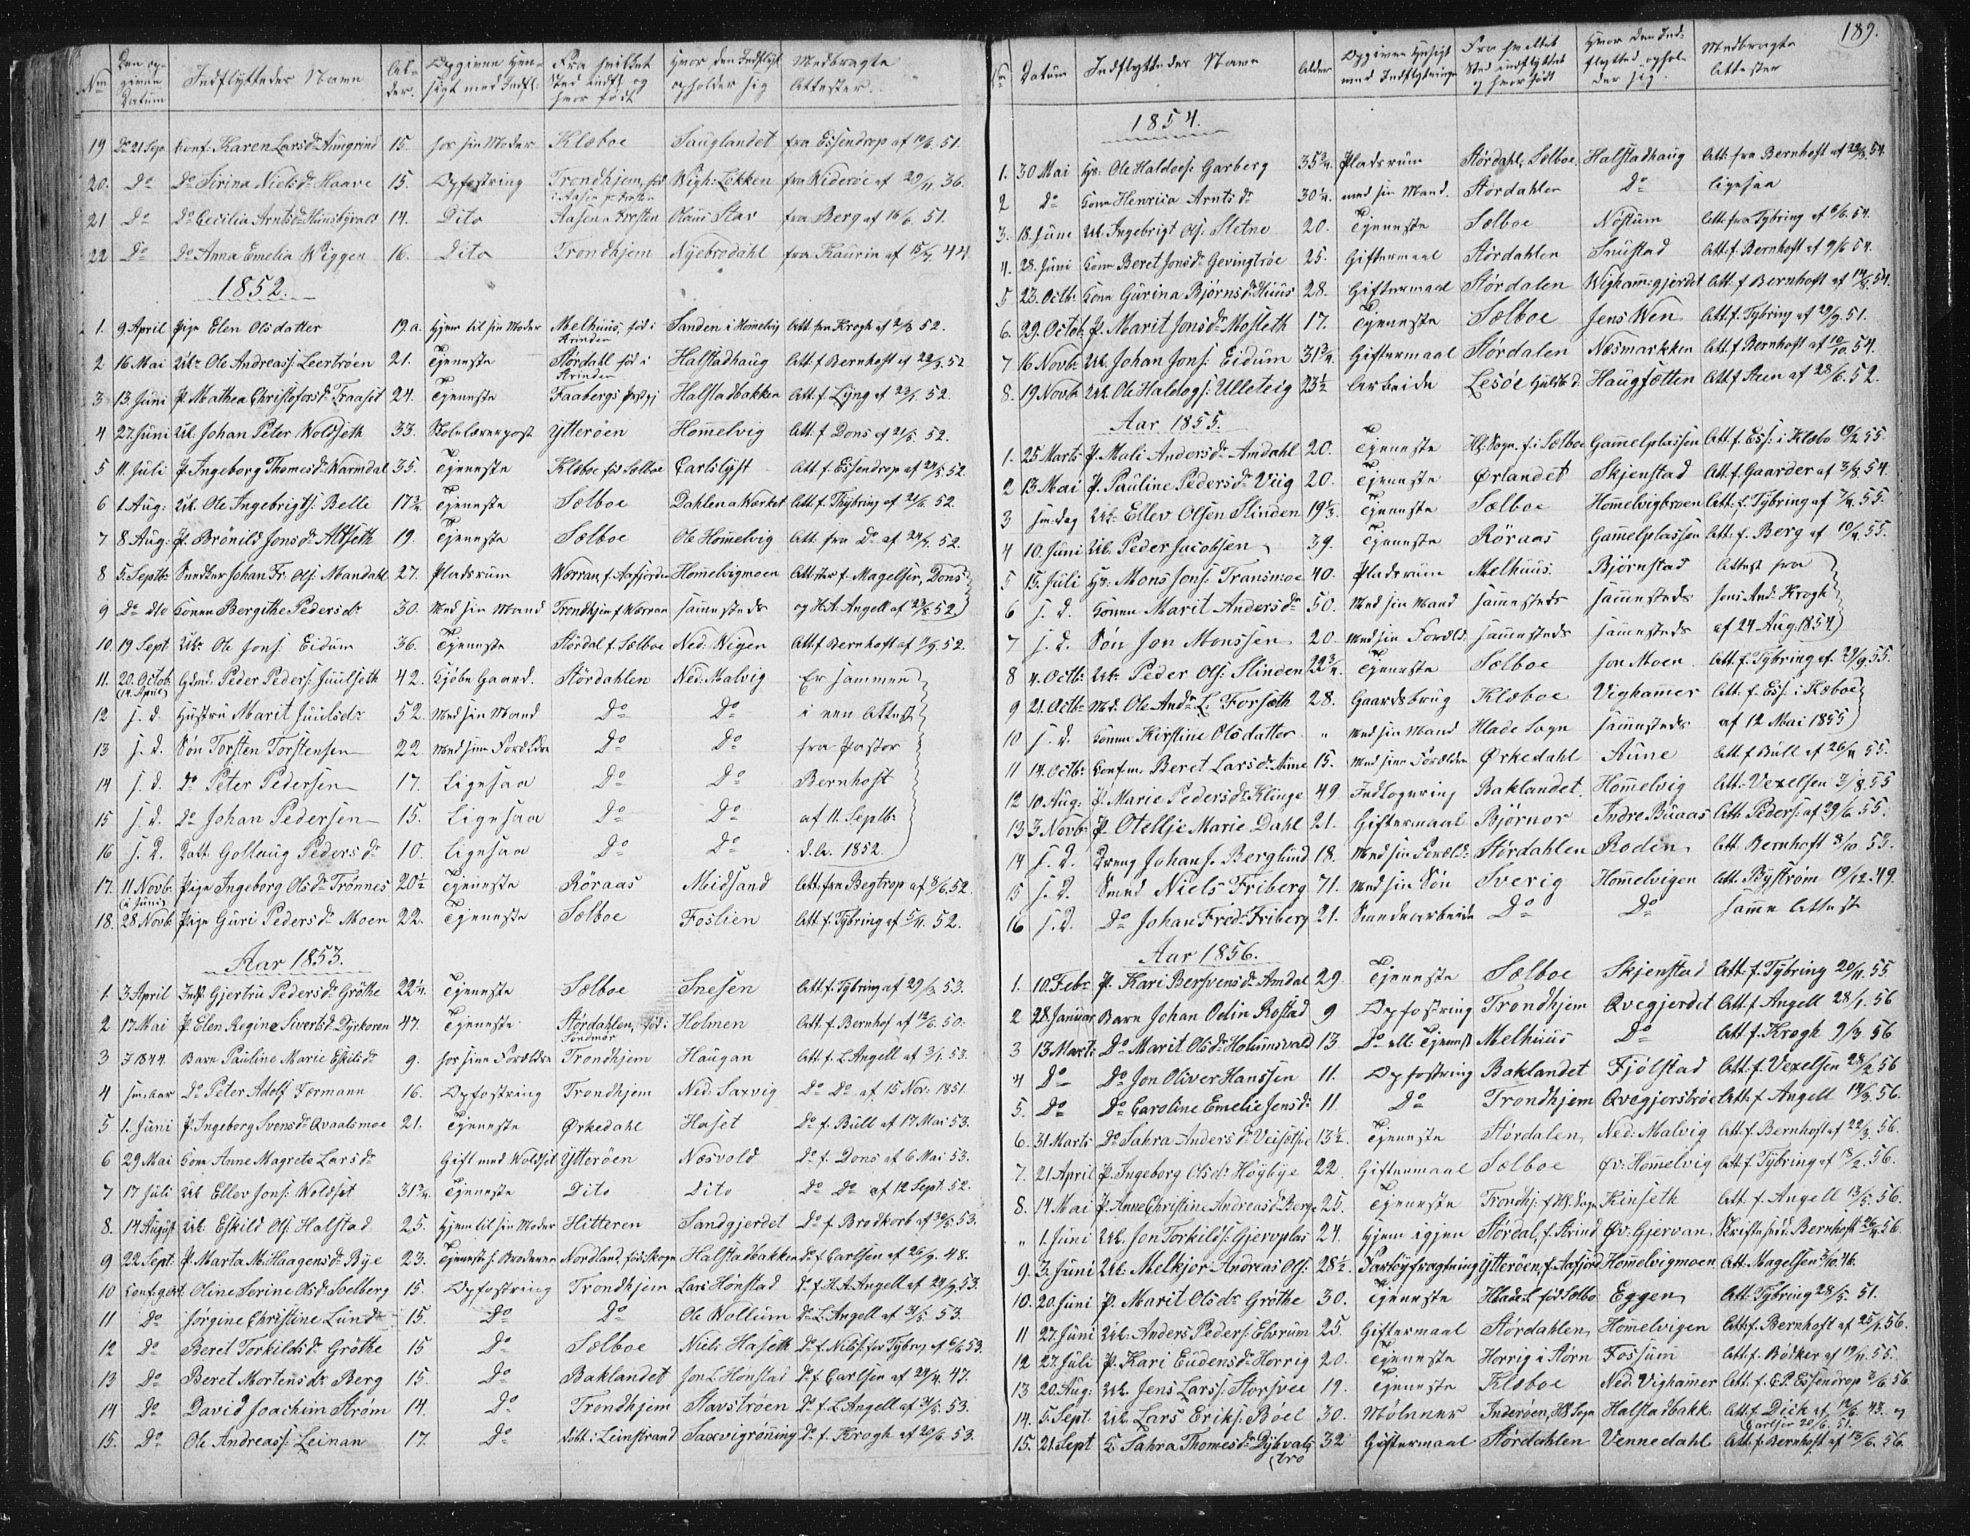 No Den opgivne Datum Indflyttedes Navn Alder Opgiven Hensigt med Indfl: Fra hvilket Sted indfl: og hvor født Hvor den Indflytt opholder sig Medbragte Attester.
19 Do 21 Sept Conf. Karen Larsdr Aungrind 15. hos sin Moder Klæboe Sauglandet fra Essendrop af 51.
20. Do Do Sirina Nielsdr Haave 15. Opfostring Trondhjem Wigh: Løkken fra Widerøe af 29/11 36.
21 Do Do Cecilia Arntsdr 14. Dito Aasen Olaus Stav fra Berg af 16/6 51.
22 Do Do Anna Emelia Wiggen 16. Dito Trondhjem Nÿebrodahl fra Kaurin af 15/7 44
1852.
1. 9 April Pige Elen Olsdatter 19 a. hjem til sin Moder Melhuus, fød i Strinden Sanden i Homelvig Att fra Krogh af 52.
2 16 Mai Uk: Ole Andreass: Leerbrøen 21. Tjeneste Størdal fød i Strinden Halstadhaug Att f. Bernhoft af 52
3 13 Juni P. Mathea Christofersdr Fraaset 24. Tjeneste Faabergs Halstadbakken Att. f. Lÿng af 52.
4 27. Juni Uk. Johan Peter Woldseth 33. Skolelærerpost Ytterøen Homelvig Att. f Dons af 21/5 52.
5 11. Juli P. Ingeborg Thomesdr Warmdal 35. Tjeneste Klæboe fød Sælboe Carlslÿst Att. f. Essendrop af 52.
6 1. Aug: Uk. Ole Ingebrigts: Belle 17 3/4. Tjeneste Sælboe Dahlen Att. f. Tÿbring af 52.
7 8 Aug: P. Brønild Jonsdr Altseth 19. Tjeneste Sælboe Ole Homelvig Att. fra Do af 52.
8 5. Septbr Smed Johan Fr. Ols: Mandahl 27. Pladsrum Worran f. Aafjorden Homelvigmoen Attester f. Magelsen, Dons
9 Do dto Konen Bergithe Pedersdr 30. Med sin Mand Trondhjem f. Worran samesteds og H.A. Angell af 52
10. 19 Sept Uk: Ole Jons: Eidum 36. Tjeneste Størdal f. Sælboe Ned: Wigen Att. f Bernhoft af 52.
11. 20. Octob (14 April) Gdmd. Peder Peders: Juulseth 42. Kjøbe Gaard. Størdahlen Ned: Malvig Er sammen
12 s. d. Hustru Marit Juulsdr 52. Med sin Mand Do Do i een Attest
13 s. d. Søn Torsten Torstensen 22. Med sine Forældre Do Do fra Pastor
14 s. d. Do Peter Pedersen 17. Ligesaa Do Do Bernhoft
15 s. d. Do Johan Pedersen 15. Ligesaa Do Do af 11. Septbr
16 s. d. Datt. Gollaug Pedersdr 10. Ligesaa Do Do d.A. 1852.
17. 11 Novb. (i Juni) Pige Ingeborg Olsdr Trønnes 20 1/2 Tjeneste Røraas Midsand Att. fra Begtrop af 52.
18. 28 Novb Pige Guri Pedersdr Moen 22. Tjeneste Sælboe Foslien Att. f. Tÿbring af 5/11 52.
Aar 1853.
1. 3 April Gjertru Pedersdr Grøthe 22 1/4. Tjeneste Sælboe Snesen Att. f. Tÿbring af 29/3 53.
2 17. Mai P. Elen Regine Sivertsdr Dÿrkoren 47. Tjeneste Størdahlen, fød: Søndmør Holmen Att. f. Bernhof af 50.
3 1844. Barn Pauline Marie Eskilsdr 9. hos sine Forældre Trondhjem Haugan Att. f. L Angell af 3/1. 53.
4 sm. aar Do Peter Adolf Formann 16. Opfostring Trondhjem Ned: Saxvig Do Do af 15 Nov. 1851.
5 1. Juni P. Ingeborg Svensdr Qvaalsmoe 21. Tjeneste Ørkedahl Haset Do f. Bull af 17 Mai 53.
6 29 Mai Kone Anne Magrete Larsdr Gift med Woldset Ytterøen Næsvold Do f. Dons af 6 Mai 53.
7 17 Juli Uk Ellev Jons: Woldset 31 3/4. Tjeneste Dito Dito Do Do af 12 Sept. 52.
8. 14 August Uk. Eskild Ols: Halstad 25. Hjem til sin Moder Hitteren Sandgjerdet Do f. Brodkorb af 53.
9 22 Sept P. Marta M. Haagensdr Bÿe 23. Tjeneste h. Broderen Nordland, fød Skogn Halstadbakken Do f. Carlsen af 26/9. 48.
10 Conf. gl. Oline Serine Olsdr Soelberg 15. Opfostring Trondhjem Lars Hønstad Do f. H.A. Angell af 53.
11 Do Jorgine Christine Lund 15. Do Do Ole Wollum Do L. Angell af 53.
12 Do Beret Torkildsdr Grøthe 15 Do Sælboe Niels Haseth Do f. Nils: for Tÿbring af 53.
13 Do Beret Mortensdr Berg 15. Do Baklandet Jon L Hønstad Do f. Carlsen af 47.
14 Do David Joachim Strøm 14. Do Trondhjem Stavstrøen Do f. L. Angell af 53.
15. Do Ole Andreass: Leinan 17. Do døbt i Leinstrand Saxvigrønning Do f. Krogh af 20/6 53.
189.
No Datum Indflyttedes Navn Alder Opgiven Hensigt med Indflytningen Fra hvilket Sted indflyttet og hvor født Hvor den Indflytted opholder sig. Medbragte Attester
1854.
1. 30 Mai Hr: Ole Haldors: Garberg 35 3/4. Pladsrum Størdahl, Sælboe Halstadhaug Att. fra Bernhoft af 54.
2 do Kone Henrica Arntsdr 30 1/4. med sin Mand. Størdahlen Do ligesaa
3. 18. Juni Uk. Ingebrigt Ols: Sletne 20. Tjeneste Sælboe Nøstum Att. fra Tÿbring af 54.
4. 28. Juni Kone Beret Jonsdr Gevingtrøe 25. Giftermaal Størdahlen Saustad Att. f. Bernhoft af 9/6 54.
5 23. Octbr Kone Gurina Bjørnsdr Huus 28. Giftermaal Størdalen Wighamgjerdet Att. f Bernhoft af 54.
6. 29. Octob. P. Marit Jonsdr Mosleth 17. Tjeneste Sælboe Jens Wen Att. f. Tÿbring af 51.
7 16 Novb: Uk. Johan Jons: Eidum 31 3/4. Giftermaal Størdalen Næsmarkken Att. f Bernhoft af 54.
8. 19 Novb Uk. Ole Haldogs: Ulleteig 23 1/2 Arbeide Lesøe Haugsetten Att f Aren af 28/6. 52.
Aar 1855.
1. 25 Marts P. Mali Andersdr Amdahl 20. Tjeneste Hl. Sogn. f. i Sælboe Gammelplassen Att. f. Ess: i Klæbo 55.
2 13. Mai P. Pauline Pedersdr Viig 20. Tjeneste Ørlandet Skjenstad Att. f. Gaarder af 3/8. 54.
3 sm. dag Uk: Ellev Olsen Slinden 19 1/2. Tjeneste Sælboe Homelvigbroen Att. f. Tÿbring af 55.
4 10. Juni Uk. Peder Jacobsen 39. Tjeneste Røraas Gammelplassen Att. f. Berg af 55.
5 15. Juli Hr: Mons Jons: Transmoe 40. Pladsrum Melhuus. Bjørnstad Attest fra
6 s. d. Konen Marit Andersdr 50. Med sin Mand samesteds samesteds Jens And. Krogh
7 s. d. Søn Jon Monssen 20. Med sin Foræld. samesteds samesteds af 24 Aug. 1854
8 4. Octbr Uk: Peder Ols: Slinden 22 3/4. Tjeneste Sælboe Jon Moen Att. f. Tÿbring af 29/9. 55.
9 21. Octbr Md. Ole Andr L. Forseth 28. Gaardsbrug Klæboe Vighamer Att. f. Ess: i Klæboe
10 s. d. Konen Kirstine Olsdatter " Med sin Mand Hlade Sogn samesteds af 12 Mai 1855
11 14. Octbr Confm. Beret Larsdr Aune 15. Med sine Forældre Ørkedahl Aune Att. f. Bull af 26/4 55.
12 10. Aug: P. Marie Pedersdr Klinge 49. Indlogering Baklandet Homelvig Att. Vexelsen 3/8. 55
13 3 Novb: P. Otellje Marie Dahl 21. Giftermaal Bjørnør Indre Buaas Att. Peders: af 29/6 55.
14 s. d. Dreng Johan J. Berglund 18. Med sin Foræld: Størdahlen Roden Att. Bernhoft 8/10 53.
15 s. d. Smed Niels Friberg 71. Med sin Søn Sverig Homelvigen Att. Bÿstrøm 19/12. 49.
16 s. d. Do Johan Fred: Friberg 21. Smedearbeide Do Do same Attest
Aar 1856.
1. 10. Febr P. Kari Bersvensdr Amdal 29. Tjeneste Sælboe Skjenstad Att. f. Tÿbring 20/11. 55
2 28. Januar Barn Johan Odin Rostad 9 Opfostring Trondhjem Qvegjerdet Att. f. Angell 28/1. 56
3 13. Marts Do Marit Olsdr Holumsvald 13. Do ell: Tjeneste Melhuus Do Att. f. Krogh 9/3. 56
4 Do Do Jon Oliver Hanssen 11. Opfostring Baklandet Fjølstad Att. f. Vexelsen 28/2 56
5. Do Do Caroline Emelie Jensdr 11 Do Trondhjem Qvegjerstrøe Att. f. Angell 14/3. 56.
6. 31 Marts Do Sahra Andersdr 13 1/2. Tjeneste Størdalen, Ned: Malvig Att. f. Bernhoft af 22/3. 56.
7. 21. April P. Ingeborg Olsdr Høgbÿe 22. Giftermaal Sælboe Øv. Homelvig Att. f. Tÿbring af 56.
8. 14 Mai P. Anne Christine Andreasdr Berge 25. Tjeneste Trondhj: f. Hl. Sogn Kinseth Att. f. Angell 13/5. 56.
" 1. Juni Uk. Jon Torkilds: Gjervplas 24. Hjem igjen Størdal, f. Strind Øv. Gjervan, Bernhoft 56.
9. 3. Juni Uk. Melkjor Andreas Ols: 28 1/2. Fartøÿfragtning Ytterøen, f. Aafjord Homelvigmoen Att. Magelsen 46.
10. 20. Juni P. Marit Olsdr Grøthe 30. Tjeneste Hlade S. fød Sælbo Eggen Att. Tÿbring 28/5. 51.
11 27. Juni Uk. Anders Peders: Elvrum 25. Giftermaal Størdahlen Homelvigen Att. f. Bernhoft af 25/5 56.
12 27. Juli P. Kari Eudensdr Horrig 20. Tjeneste Horrig i Størn Fossum Att. f. Bödker af 55.
13 20. Aug. Uk. Jens Larss: Storsvee 19. Tjeneste Klæboe Ned: Vighamer Att. f. E.P. Essendrop 56.
14. 5. Sept. Uk. Lars Eriks: Bøel 30. Mölnner Inderøen, Hl. Sogn Halstadbakk Att. f. Dick af 12/6. 43. og Carlsen 20/6. 51.
15. 21. Sept E. Sahra Thomesdr Dÿbvals 32 Giftermaal Størdahlen Vennedahl Att. f. Bernhoft af 13/6. 56.